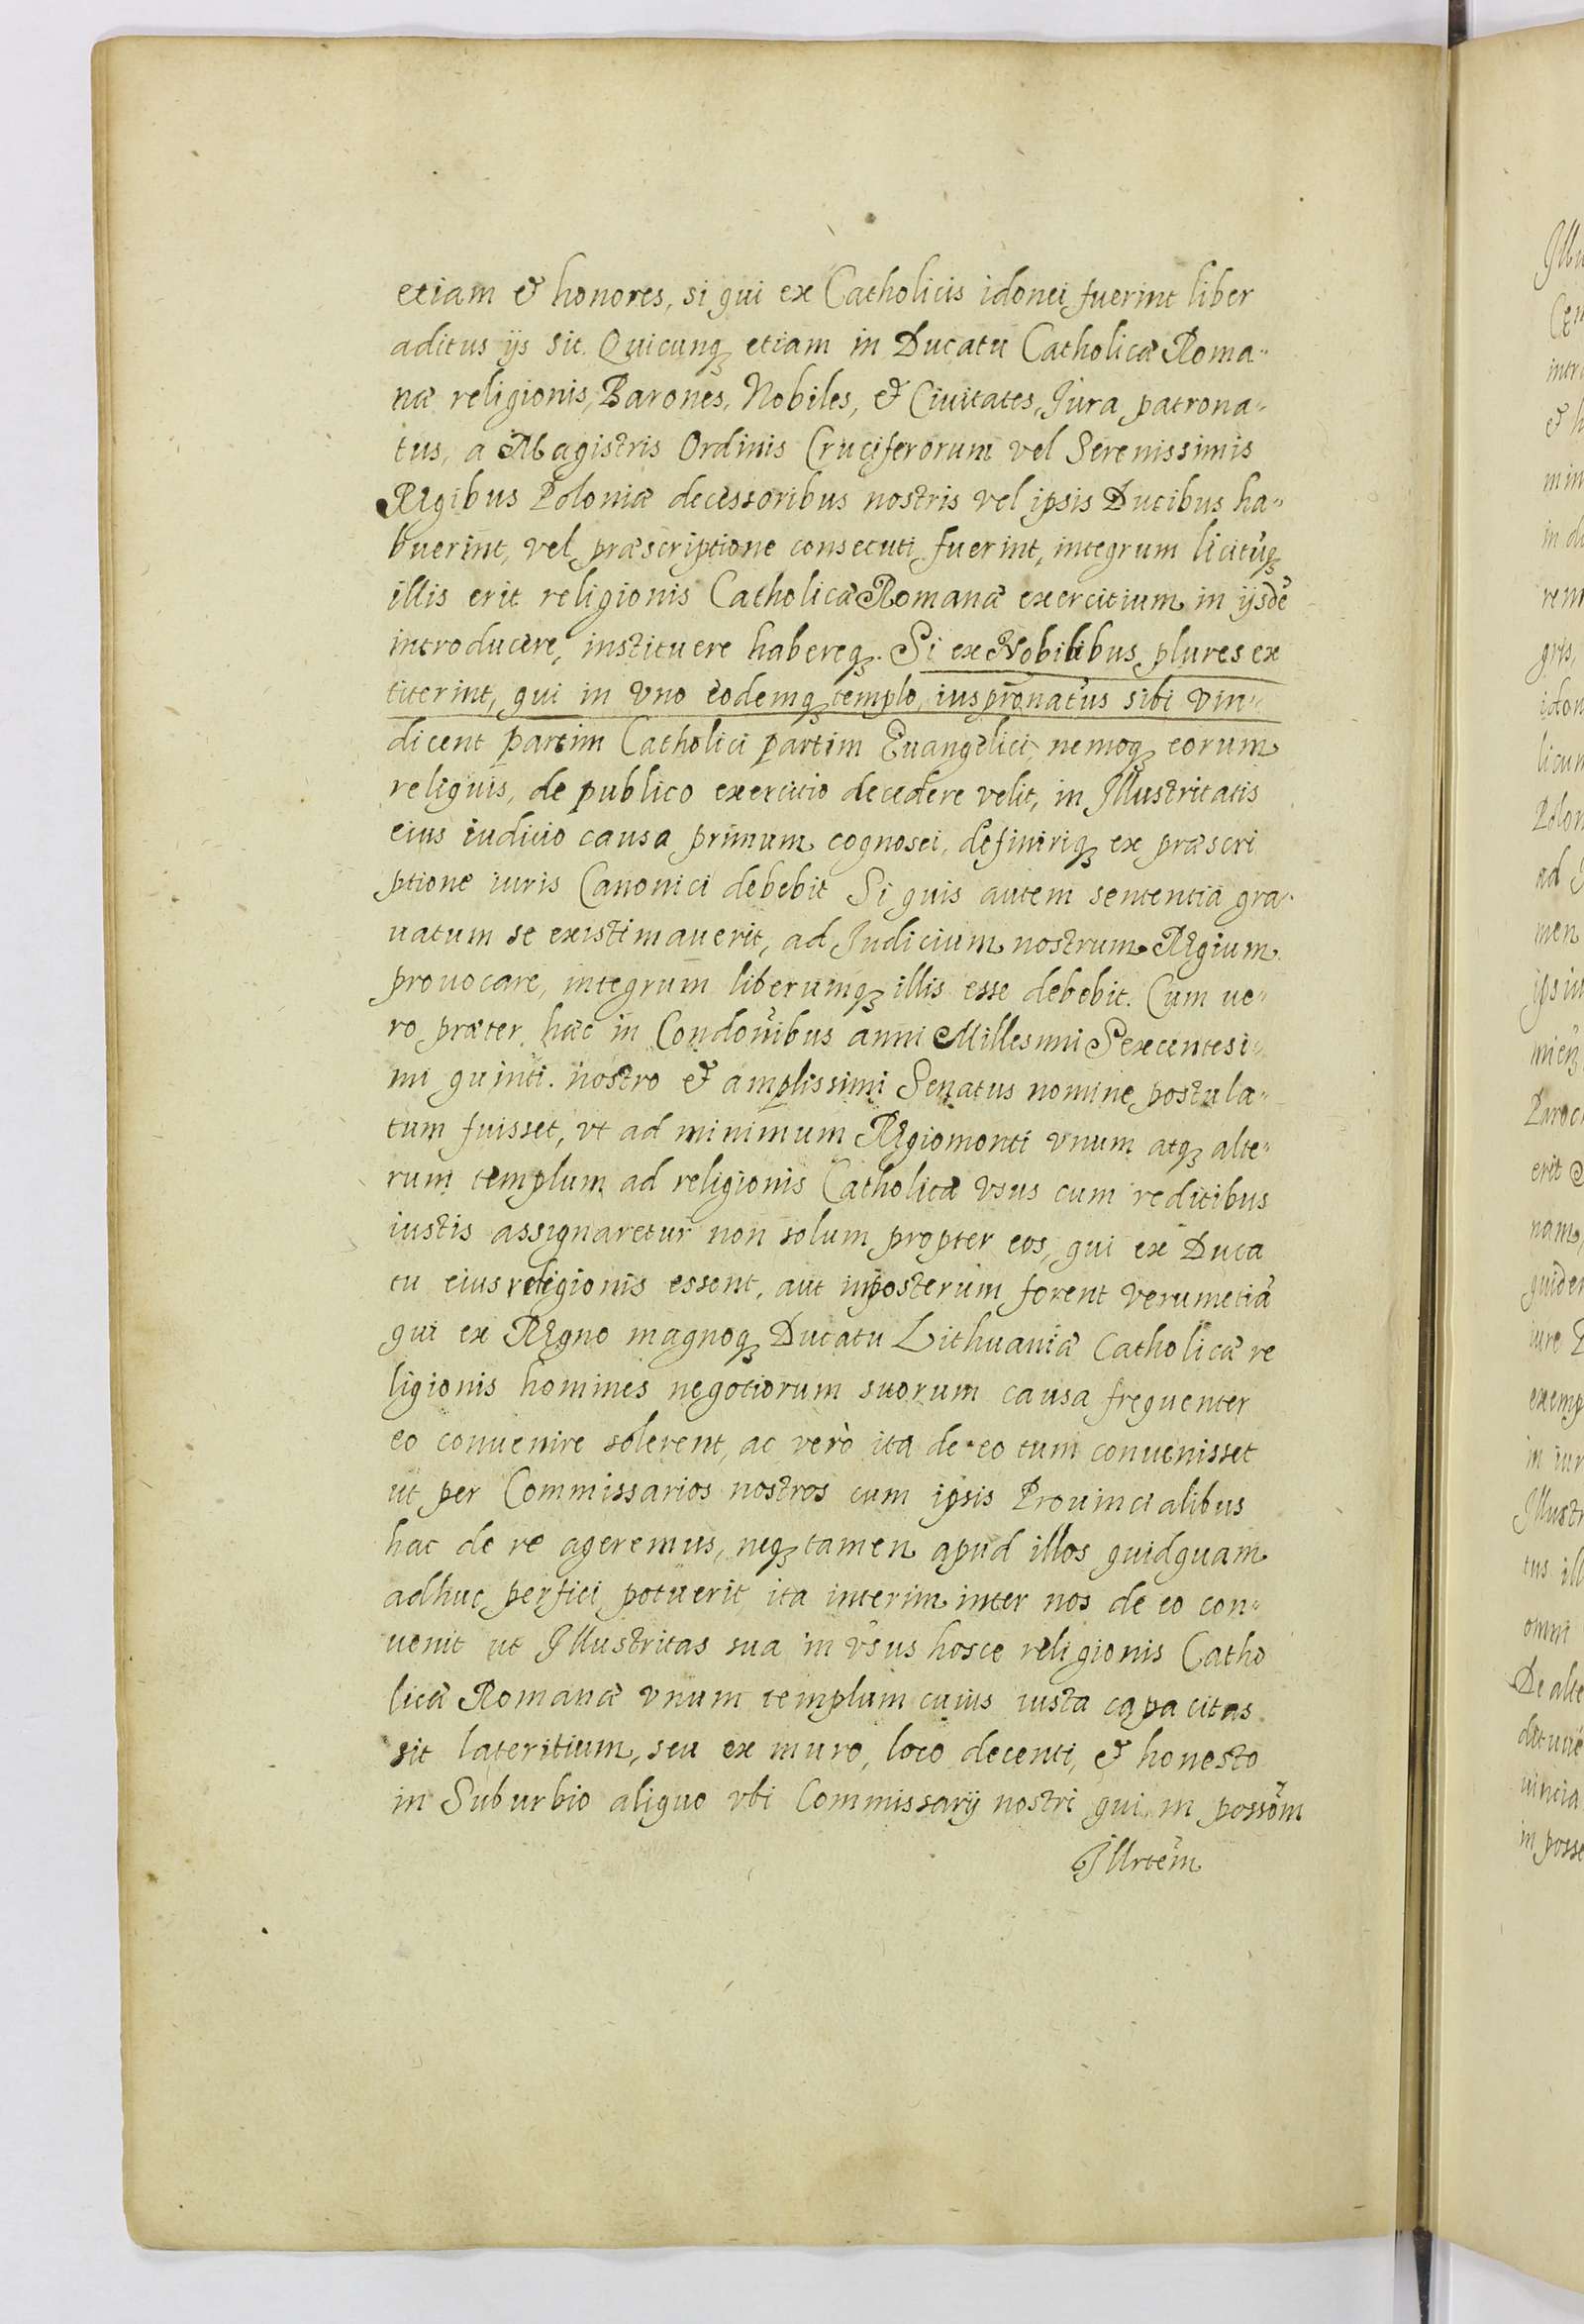 etiam & honores, si qui ex Catholicis idonei fuerint liber
aditus ijs sit. Quicunq; etiam in Ducatu Catholicæ Roma-
næ religionis, Barones, Nobiles, & Ciuitates, Jura patrona-
tus, a Magistris Ordinis Cruciferorum vel Serenissimis
Regibus Poloniæ decessoribus nostris vel ipsis Ducibus ha-
buerint, vel præscriptione consecuti fuerint, integrum licitūq;
illis erit religionis Catholicæ Romanæ exercitium in ijsdē
introducere, instituere habereq;. Si ex Nobilibus plures ex
titerint, qui in vno eodemq; templo, ius pronatus sibi vin-
dicent partim Catholici partim Euangelici, nemoq; eorum
reliquis, de publico exercitio decedere velit, in Illustritatis
eius iudicio causa primum cognosci, definiriq; ex præscri
ptione iuris Canonici debebit Si quis autem sententia gra-
uatum se existimauerit, ad Judicium nostrum Regium
prouocare, integrum liberumq; illis esse debebit. Cum ve-
ro præter hæc in Condonibus anni Millesimi Sexcentesi-
mi quinti. nostro & amplissimi Senatus nomine postula-
tum fuisset, vt ad minimum Regiomonti vnum atq; alte-
rum templum ad religionis Catholicæ vsus cum reditibus
iustis assignaretur non solum propter eos, qui ex Duca
tu eius religionis essent, aut inposterum forent verumetiā
qui ex Regno magnoq; Ducatu Lithuaniæ Catholicæ re
ligionis homines negotiorum suorum causa frequenter
eo conuenire solerent, ac verò ita de eo tum conuenisset
ut per Commissarios nostros cum ipsis Prouincialibus
hac de re ageremus, neq; tamen apud illos quidquam
adhuc perfici potuerit ita interim inter nos de eo con-
uenit ut Illustritas sua in vsus hosce religionis Catho
licæ Romanæ vnum templum cuius iusta capacitas
sit lateritium, seu ex muro, loco decenti, & honesto
in Suburbio aliquo vbi Commissarij nostri qui in possōm
Illrtēm